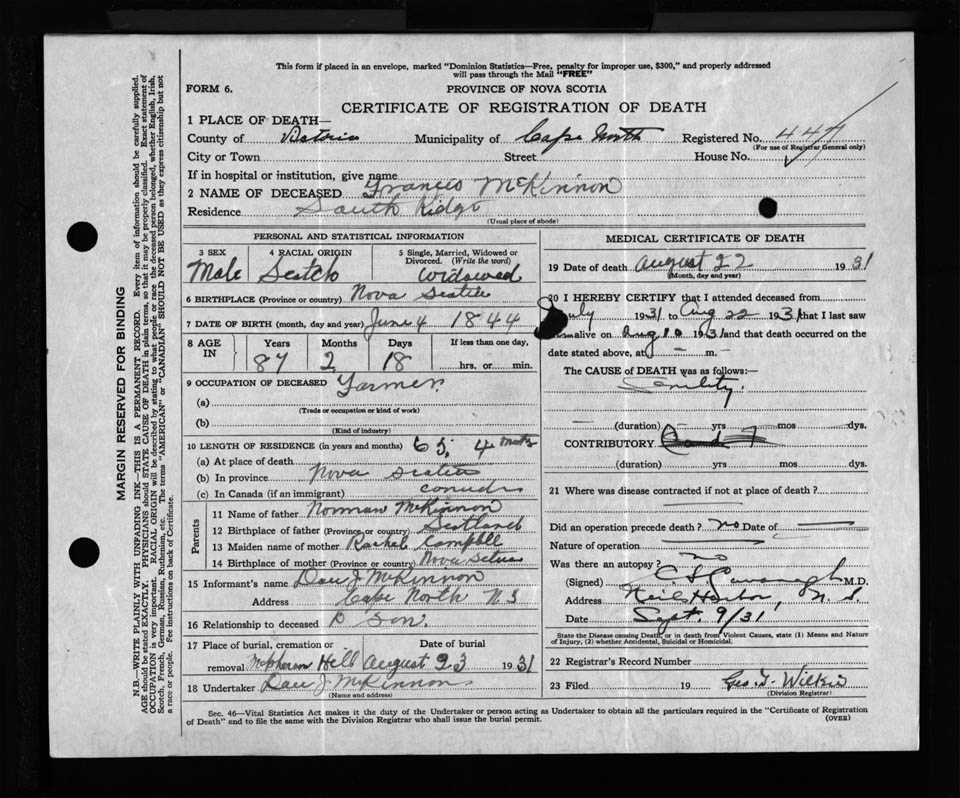 This form if placed in an envelope, marked "Dominion Statistics—Free, penalty for improper use, $300," and properly addressed
will pass through the Mail "FREE"
FORM 6.
PROVINCE OF NOVA SCOTIA
CERTIFICATE OF REGISTRATION OF DEATH
1 PLACE OF DEATH—
County of Municipality of Cape North Registered No. 447
(For use of Registrar General only)
City or Town Street House No.
If in hospital or institution, give name
2 NAME OF DECEASED Francis McKinnon
Residence South Ridge
(Usual place of abode)
PERSONAL AND STATISTICAL INFORMATION
3 SEX 4 RACIAL ORIGIN 5 Single, Married, Widowed or
Divorced. (Write the word)
Male Scotch Widowed
6 BIRTHPLACE (Province or country) Nova Scotia
7 DATE OF BIRTH (month, day and year) June 4 1844
8 AGE IN Years Months Days If less than one day,
87 2 18 hrs. or min.
9 OCCUPATION OF DECEASED Farmer
(a)
(Trade or occupation or kind of work)
(b)
(Kind of industry)
10 LENGTH OF RESIDENCE (in years and months) 65, 4
(a) At place of death
(b) In province Nova Scotia
(c) In Canada (if an immigrant)
Parents
11 Name of father Norman McKinnon
12 Birthplace of father (Province or country) Scotland
13 Maiden name of mother Rachel Campbell
14 Birthplace of mother (Province or country) Nova
15 Informant's name Dan J McKinnon
Address Cape North N S
16 Relationship to deceased Son
17 Place of burial, cremation or Date of burial
removal McPherson Hill August 23 1931
18 Undertaker Dan J McKinnon
(Name and address)
MEDICAL CERTIFICATE OF DEATH
19 Date of death August 22 1931
(Month, day and year)
20 I HEREBY CERTIFY that I attended deceased from
July 1931 to Aug 22 1931 that I last saw
alive on Aug 10 1931 and that death occurred on the
date stated above, at — m. —
The CAUSE of DEATH was as follows:—
Senility.
— (duration) — yrs — mos — dys.
CONTRIBUTORY
(duration) yrs mos dys.
21 Where was disease contracted if not at place of death?
Did an operation precede death? no Date of —
Nature of operation
Was there an autopsy? no
(Signed) M.D.
Address Neil Harbor, N. S.
Date Sept. 9/31
State the Disease causing Death, or in death from Violent Causes, state (1) Means and Nature
of Injury, (2) whether Accidental, Suicidal or Homicidal.
22 Registrar's Record Number
23 Filed 19 Geo T. Wilkie
(Division Registrar)
Sec. 46—Vital Statistics Act makes it the duty of the Undertaker or person acting as Undertaker to obtain all the particulars required in the "Certificate of Registration
of Death" and to file the same with the Division Registrar who shall issue the burial permit. (OVER)
MARGIN RESERVED FOR BINDING
N.B.—WRITE PLAINLY WITH UNFADING INK—THIS IS A PERMANENT RECORD. Every item of information should be carefully supplied.
AGE should be stated EXACTLY. PHYSICIANS should STATE CAUSE OF DEATH in plain terms, so that it may be properly classified. Exact statement of
OCCUPATION is very important. RACIAL ORIGIN will be described by stating to what people or race the deceased person belonged, whether English, Irish,
Scotch, French, German, Russian, Ruthenian, etc. The terms "AMERICAN" or "CANADIAN" SHOULD NOT BE USED as they express citizenship but not
a race or people. See instructions on back of Certificate.